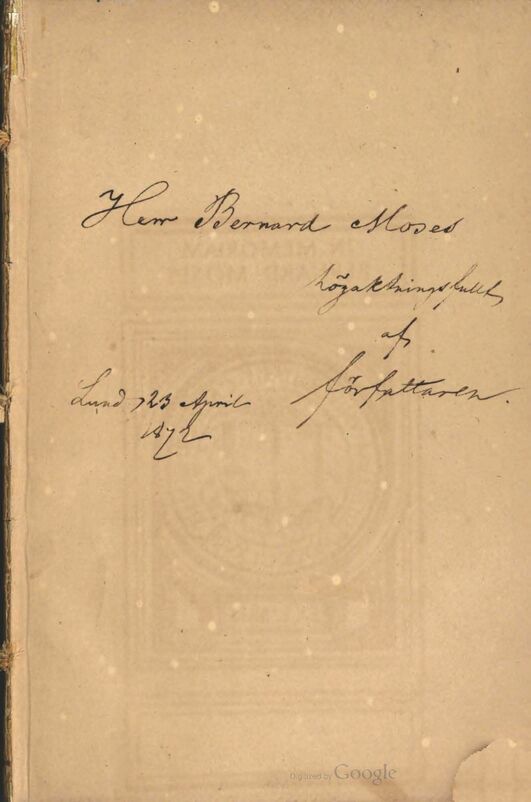 Herr Bernard Moses
högaktningsfullt
af
författaren.
Lund, 23 April
1872
Digitized by Google